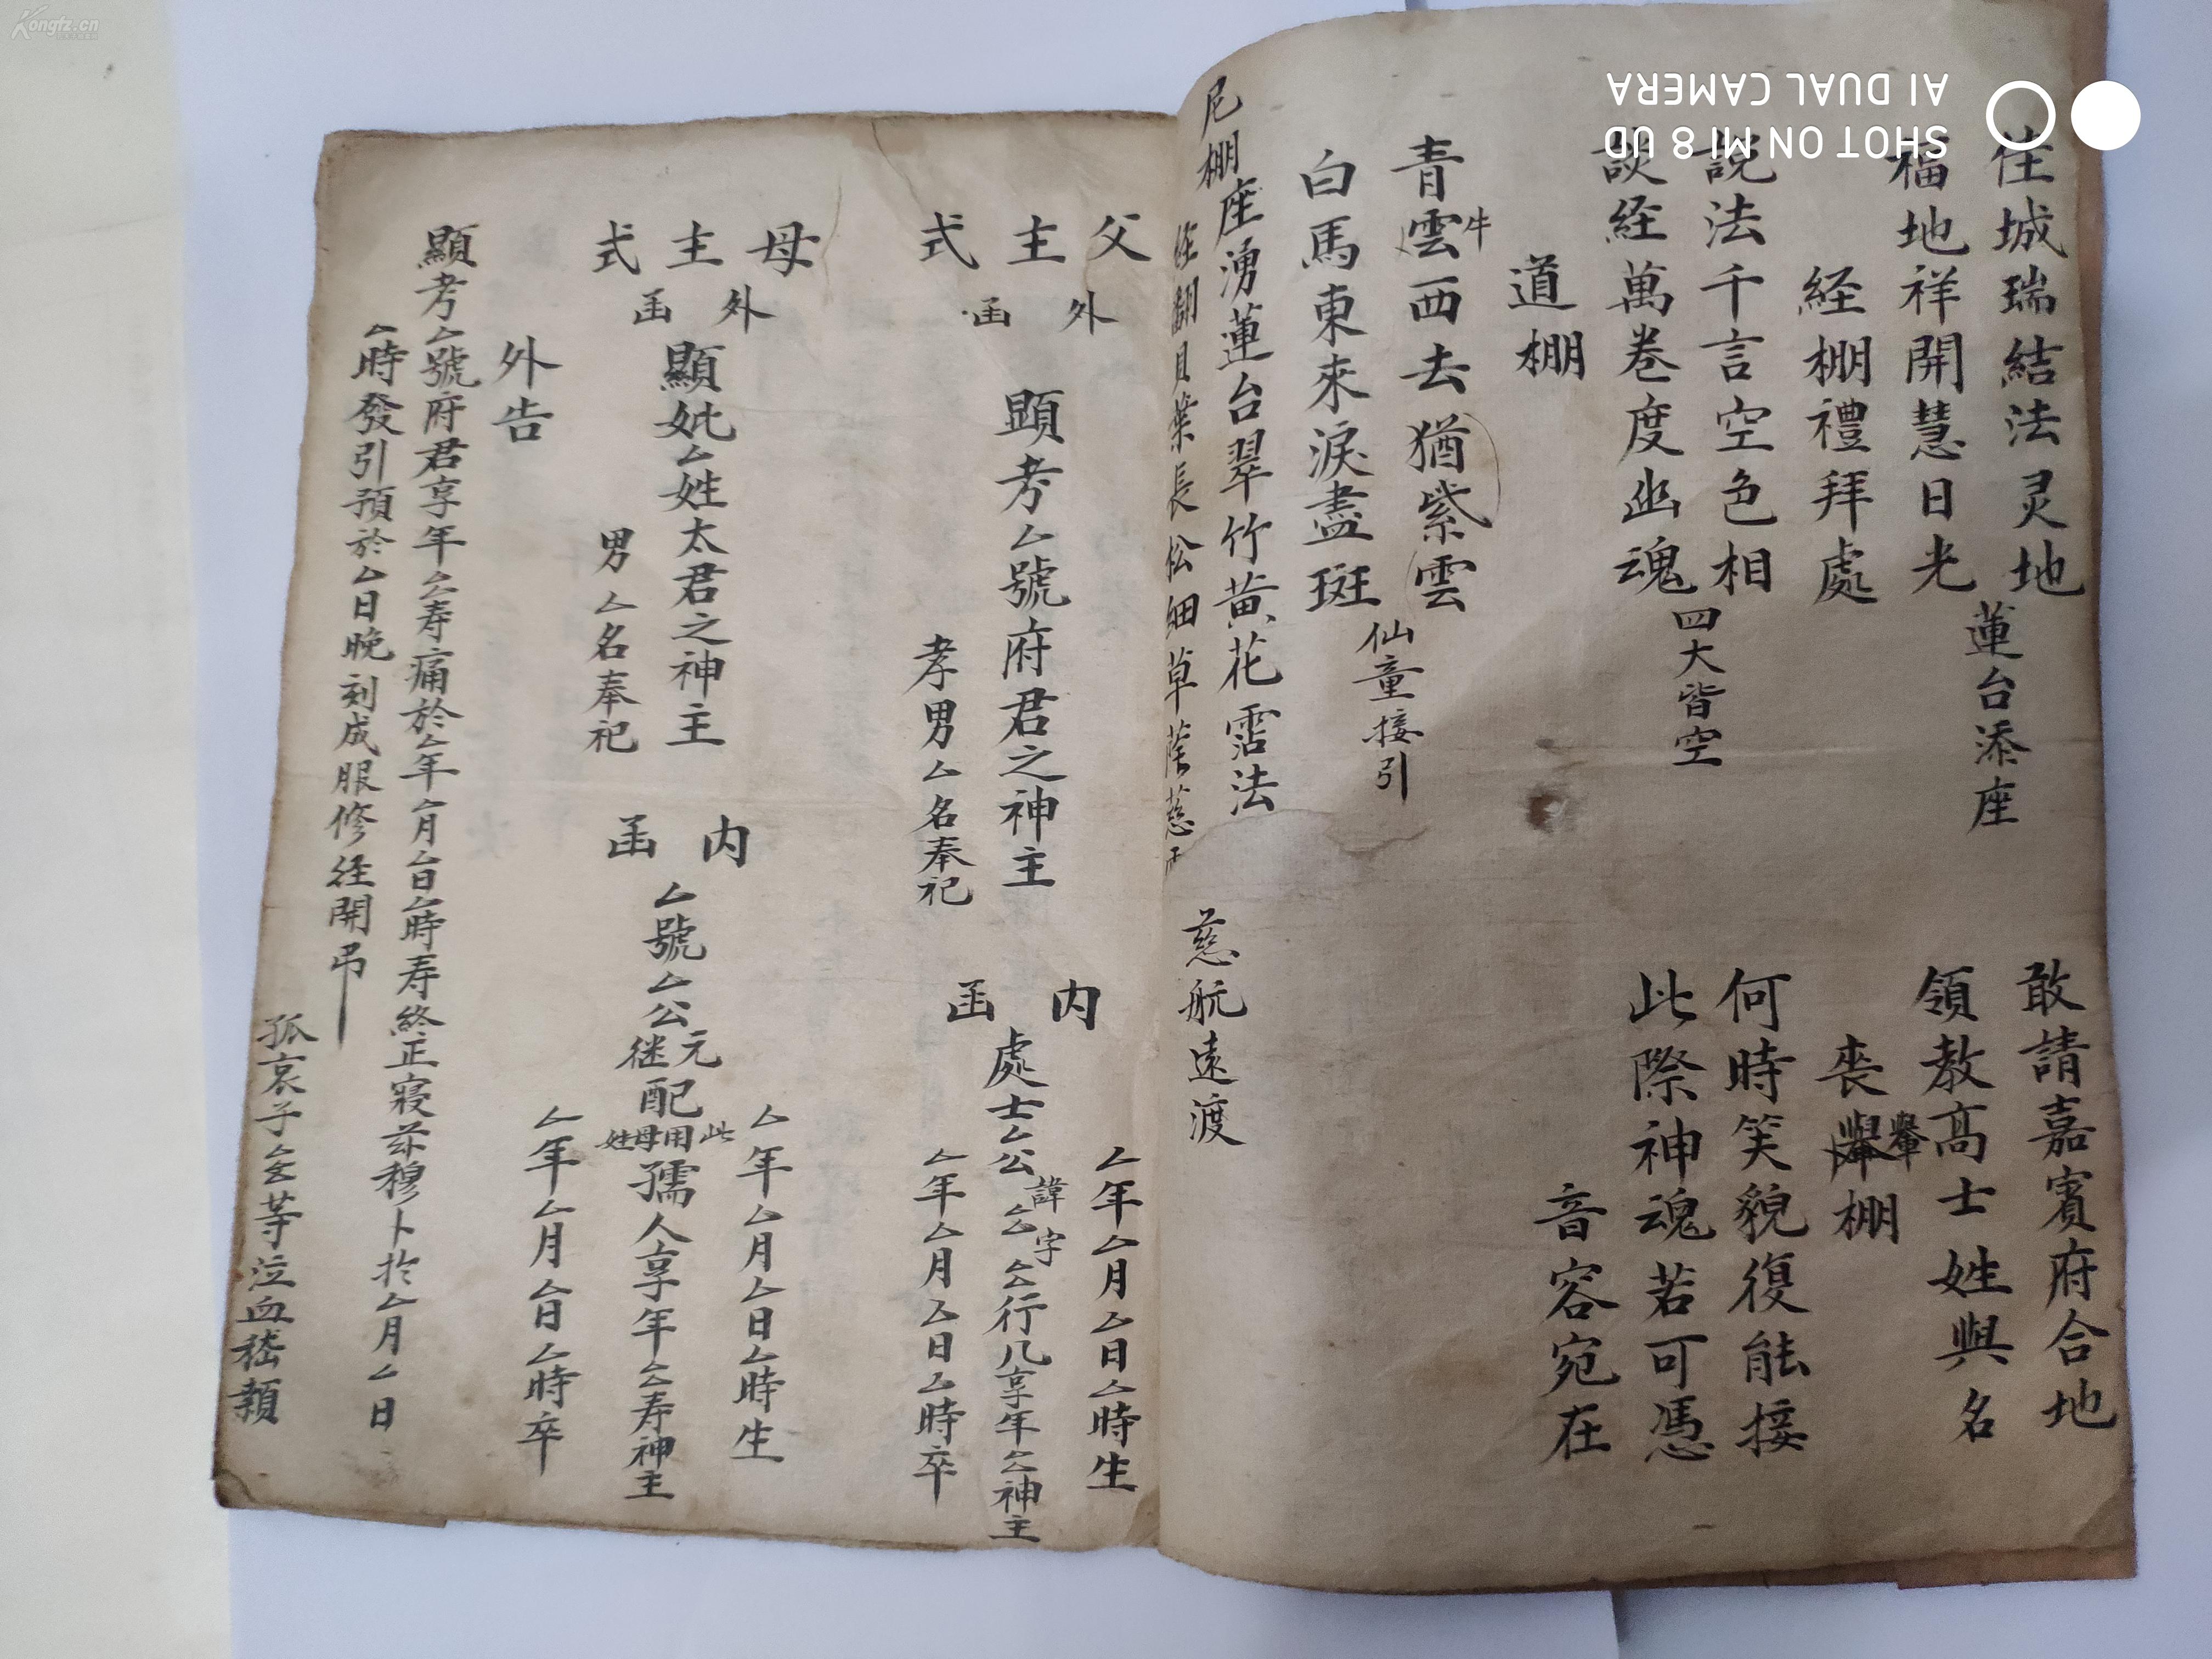 佳城瑞結法灵地
福地祥開慧日光
蓮台添座
経棚禮拜處
説法千言空色相
談経萬卷度幽魂
四大皆空
道棚
青雲西去猶紫雲
牛
白馬東來淚盡斑
仙童接引
尼棚
座湧蓮台翠竹黃花霑法
経翻貝葉長松細草蔭慈
慈航遠渡
敢請嘉賓府合地
領教高士姓與名
喪轝棚
何時笑貌復能接
此際神魂若可憑
音容宛在
父主式
外函
顕考厶號府君之神主
孝男厶名奉祀
内函
厶年厶月厶日厶時生
處士厶公諱厶字厶行几享年厶神主
厶年厶月厶日厶時卒
母主式
外函
顯妣厶姓太君之神主
男厶名奉祀
内函
厶年厶月厶日厶時生
厶號厶公元継配此用母姓孺人享年厶寿神主
厶年厶月厶日厶時卒
外告
顯考厶號府君享年厶寿痛於厶年厶月厶日厶時寿終正寢兹穆卜扵厶月厶日
厶時發引預於厶日晚刻成服修経開弔
孤哀子厶等泣血稽顙
SHOT ON MI 8 UD
AI DUAL CAMERA
Kongfz.cn